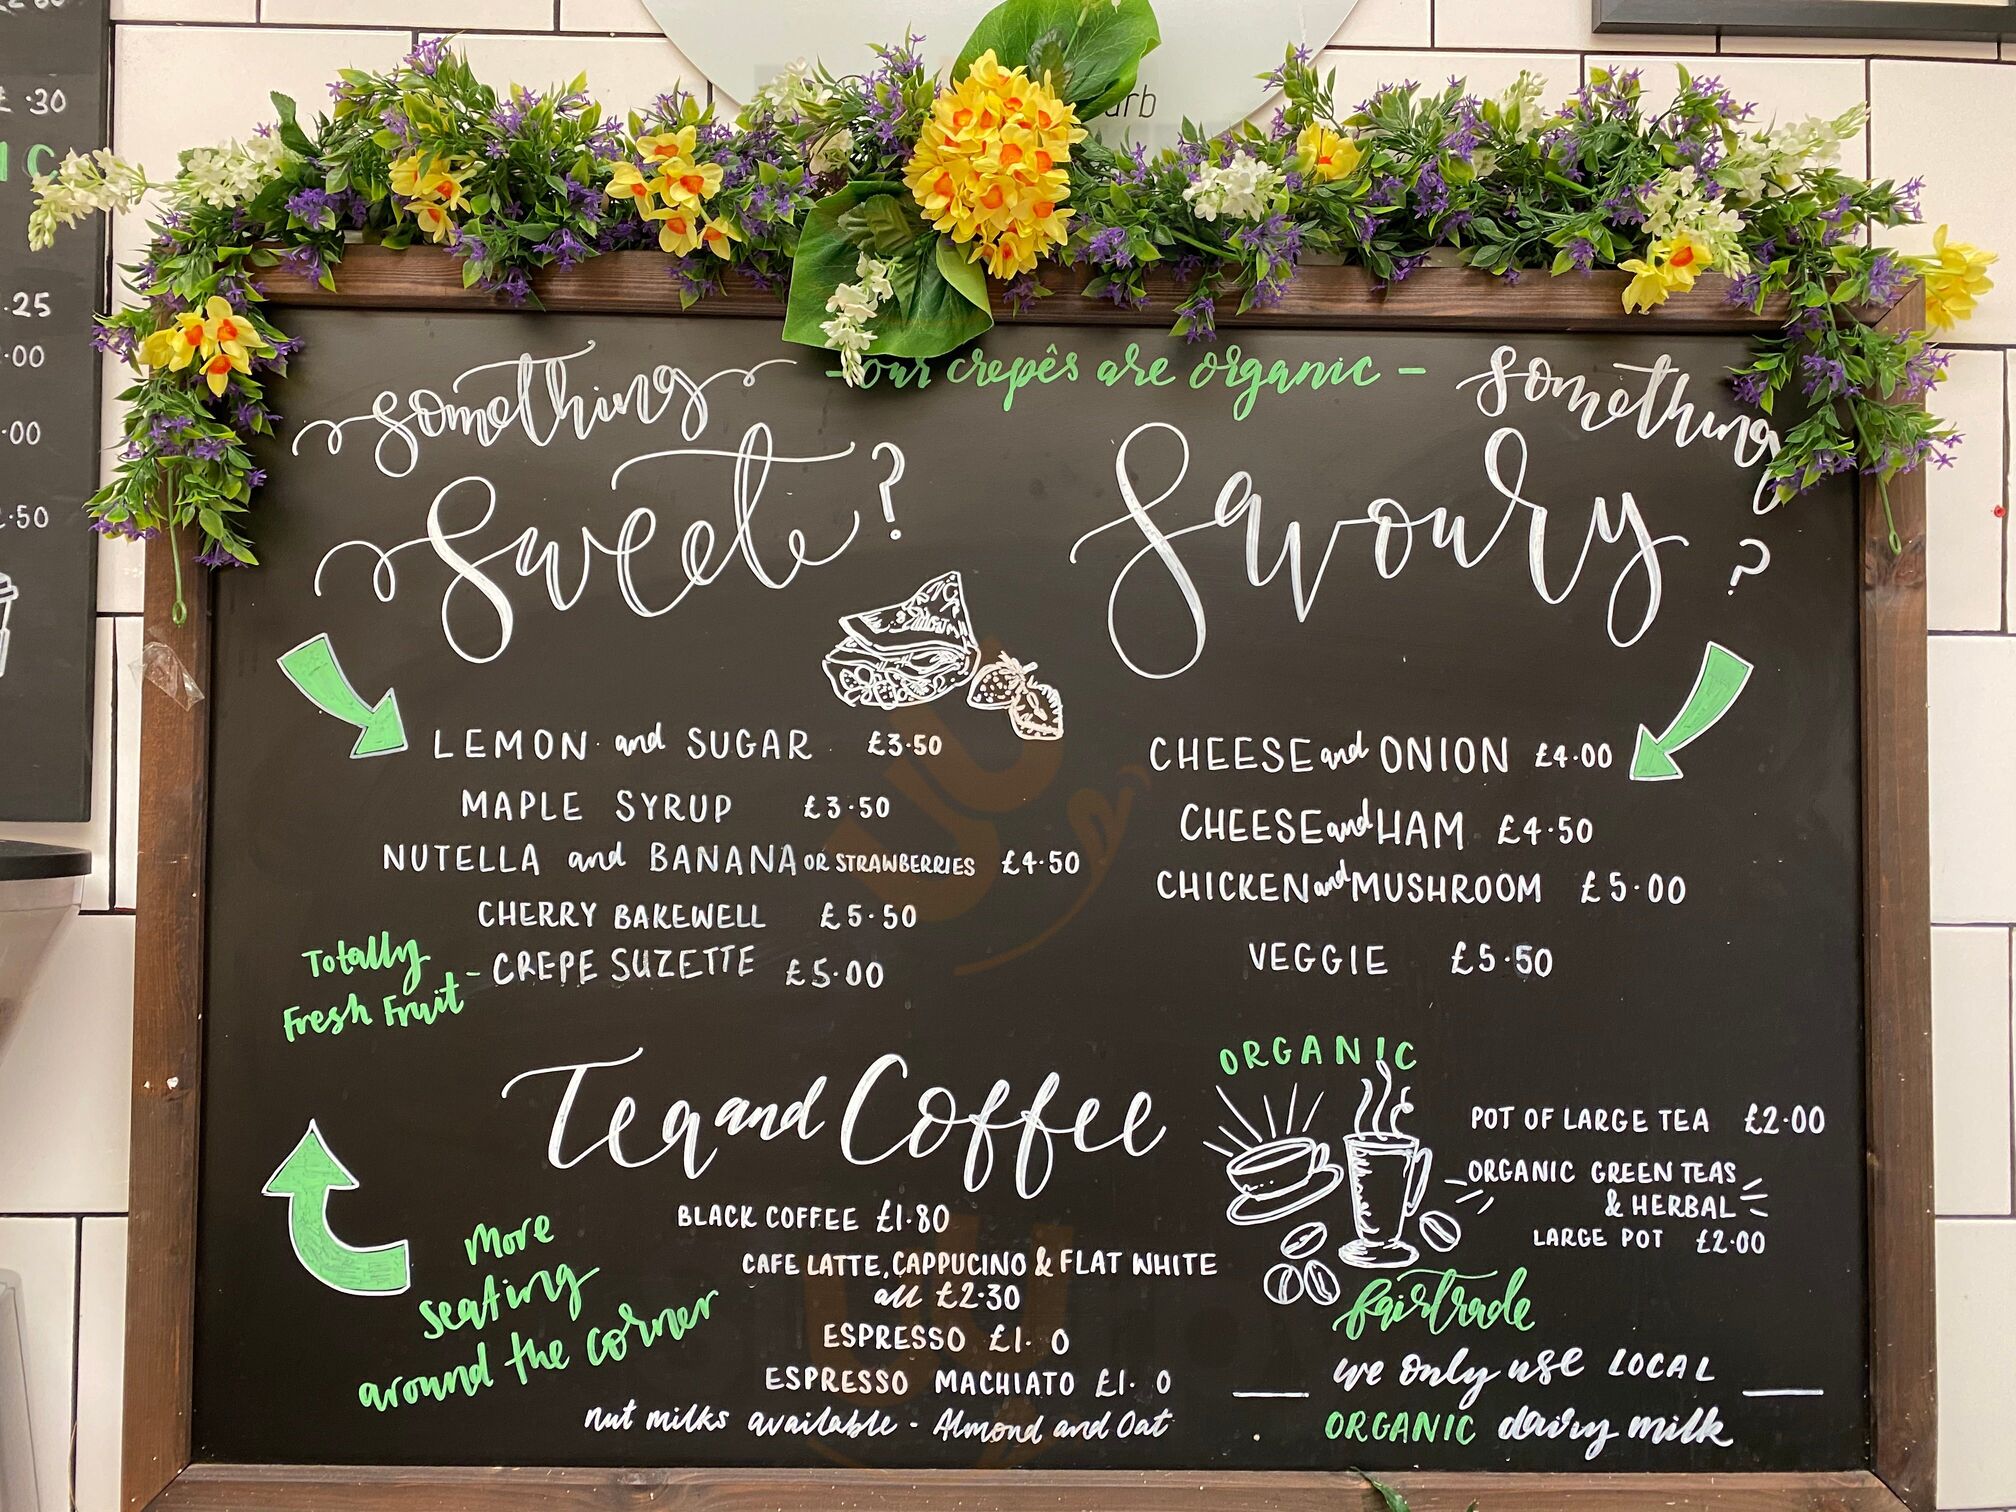 £ .30
.25
.00
.00
.50
- our crepês are organic -
something
Sweet?
LEMON and SUGAR £3.50
MAPLE SYRUP £3.50
NUTELLA and BANANA OR STRAWBERRIES £4.50
CHERRY BAKEWELL £5.50
Totally
Fresh Fruit
- CREPE SUZETTE £5.00
something
Savoury
?
CHEESE and ONION £4.00
CHEESE and HAM £4.50
CHICKEN and MUSHROOM £5.00
VEGGIE £5.50
Tea and Coffee
BLACK COFFEE £1.80
CAFE LATTE, CAPPUCINO & FLAT WHITE
all £2.30
ESPRESSO £1. 0
ESPRESSO MACHIATO £1. 0
nut milks available - Almond and Oat
More
seating
around the corner
ORGANIC
POT OF LARGE TEA £2.00
ORGANIC GREEN TEAS
& HERBAL
LARGE POT £2.00
fairtrade
we only use LOCAL
ORGANIC dairy milk